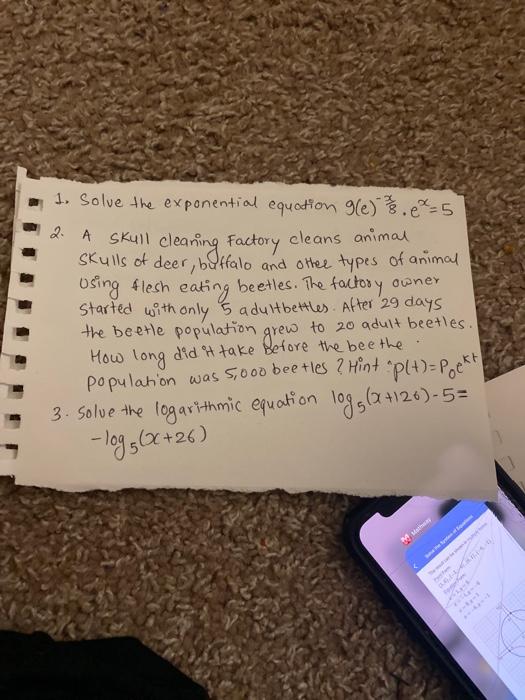 1. Solve the exponential equation 9(e)^-x/8 . e^x = 5
2. A skull cleaning Factory cleans animal
skulls of deer, buffalo and other types of animal
using flesh eating beetles. The factory owner
started with only 5 adult bettles. After 29 days
the beetle population grew to 20 adult beetles.
How long did it take before the beethe
population was 5,000 beetles? Hint: p(t)=P₀e^kt
3. Solve the logarithmic equation log₅(x+126)-5=
-log₅(x+26)
Mathway
Solve the System of Equations